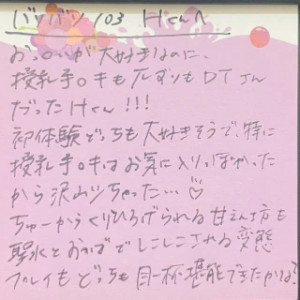 バツバツ103 Hくんへ
おっ○いが大好きなのに、
授乳手○キも○ずりもDTさん
だったHくん!!!
初体験どっちも大好きそうで、特に
授乳手○キはお気に入りっぽかった
から沢山シちゃった…♡
ちゅーからくりひろげられる甘えん坊も
聖水とおかずでしこしこされる変態
プレイもどっちも目一杯堪能できたかな?